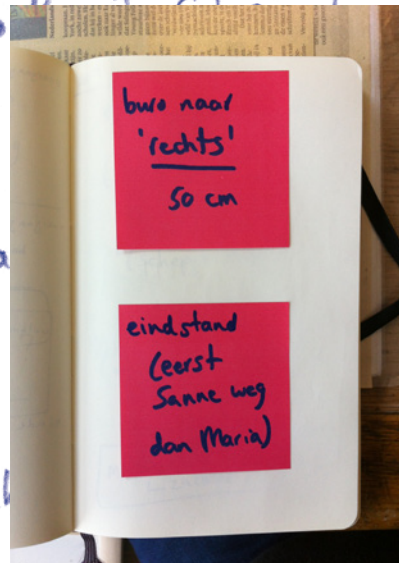 buro naar
'rechts'
50 cm
eindstand
(eerst
Sanne weg
dan Maria)